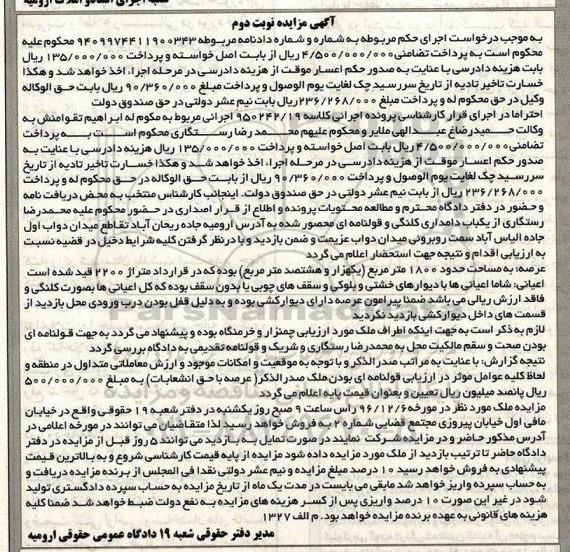 آگهی مزایده نوبت دوم
به موجب درخواست اجرای حکم مربوطه به شماره و شماره دادنامه مربوطه ۹۴۰۹۹۷۴۴۱۱۹۰۰۳۴۳ محکوم علیه
محکوم است به پرداخت تضامنی ۴/۵۰۰/۰۰۰/۰۰۰ ریال از بابت اصل خواسته و پرداخت ۱۳۵/۰۰۰/۰۰۰ ریال
بابت هزینه دادرسی با عنایت به صدور حکم اعسار موقت از هزینه دادرسی در مرحله اجراء اخذ خواهد شد و هکذا
خسارت تاخیر تادیه از تاریخ سررسید چک لغایت یوم الوصول و پرداخت مبلغ ۹۰/۳۶۰/۰۰۰ ریال بابت حق الوکاله
وکیل در حق محکوم له و پرداخت مبلغ ۲۳۶/۲۶۸/۰۰۰ ریال بابت نیم عشر دولتی در حق صندوق دولت
احتراما در اجرای قرار کارشناسی پرونده اجرائی کلاسه ۹۵۰۲۴۲/۱۹ اجرائی مربوط به مکوم له ابراهیم تقوامنش به
وکالت حمیدرضاغ عبدالهی ملایر و محکوم علیهم محمد رضا رستگاری محکوم است به پرداخت
تضامنی ۴/۵۰۰/۰۰۰/۰۰۰ ریال بابت اصل خواسته و پرداخت ۱۳۵/۰۰۰/۰۰۰ ریال هزینه دادرسی با عنایت به
صدور حکم اعسار موقت از هزینه دادرسی در مرحله اجراء، اخذ خواهد شد و هکذا خسارت تاخیر تادیه از تاریخ
سررسید چک لغایت یوم الوصول و پرداخت ۹۰/۳۶۰/۰۰۰ ریال از بابت حق الوکاله در حق محکوم له و پرداخت
۲۳۶/۲۶۸/۰۰۰ ریال از بابت نیم عشر دولتی در حق صندوق دولت. اینجانب کارشناس منتخب به محض دریافت نامه
و حضور در دفتر دادگاه محترم و مطالعه محتویات پرونده و اطلاع از قرار اصداری در حضور محکوم علیه محمدرضا
رستگاری از یکباب دامداری کلنگی و قولنامه ای محصور شده به آدرس ارومیه جاده ریحان آباد تقاطع میدان دواب اول
جاده الیاس آباد سمت روبروئی میدان دواب عزیمت و ضمن بازدید و با درنظر گرفتن کلیه شرایط دخیل در قضیه نسبت
به ارزیابی اقدام و نتیجه جهت استحضار اعلام می گردد
عرصه: به مساحت حدود ۱۸۰۰ متر مربع (یکهزار و هشتصد متر مربع) بوده که در قرارداد متراژ ۲۲۰۰ قید شده است
اعیانی: شاما اعیانی ها با دیوارهای خشتی و بلوکی و سقف های چوبی یا بدون سقف بوده که کل اعیانی ها بصورت کلنگی و
فاقد ارزش ریالی می باشد ضمنا پیرامون عرصه دارای دیوارکشی بوده و به دلیل قفل بودن درب ورودی محل بازدید از
قسمت های داخل دیوارکشی بازدید نگردید
لازم به ذکر است به جهت اینکه اطراف ملک مورد ارزیابی چمنزار و خرمنگاه بوده و پیشنهاد می گردد به جهت قولنامه ای
بودن صحت و سقم مالکیت محل به محمدرضا رستگاری و شریک و قولنامه تقدیمی به دادگاه بررسی گردد
نتیجه گزارش: با عنایت به مراتب صدر الذکر و با توجه به موقعیت و امکانات موجود و ارزش معاملاتی متداول در منطقه و
لحاظ کلیه عوامل موثر در ارزیابی قولنامه ای بودن ملک صدرالذکر( عرصه با حق انشعابات) به مبلغ ۵۰۰/۰۰۰/۰۰۰
ریال پانصد میلیون ریال تعیین و بعنوان قیمت پایه اعلام می گردد
مزایده ملک مورد نظر در مورخه ۹۶/۱۲/۶ راس ساعت ۹ صبح روز یکشنبه در دفتر شعبه ۱۹ حقوقی واقع در خیابان
مافی اول خیابان پیروزی مجتمع قضایی شماره ۲ به فروش خواهد رسید لذا متقاضیان می توانند در مورخه اعلامی در
آدرس مذکور حاضر و در مزایده شرکت نمایند در صورت تمایل به بازدید می توانند ۵ روز قبل از مزایده در دفتر
دادگاه حاضر تا ترتیب بازدید از ملک مورد مزایده داده شود مزایده از پایه قیمت کارشناسی شروع و به بالاترین قیمت
پیشنهادی به فروش خواهد رسید ۱۰ درصد مبلغ مزایده و نیم عشر دولتی نقدا فی المجلس از برنده مزایده دریافت و
به حساب سپرده واریز خواهد شد مابقی می بایست در مدت یک ماه از تاریخ مزایده به حساب سپرده دادگستری تولید
شود در غیر این صورت ۱۰ درصد واریزی پس از کسر هزینه های مزایده به نفع دولت ضبط خواهد شد ضمنا کلیه
هزینه های قانونی به عهده برنده مزایده خواهد بود. م الف ۱۳۲۷
مدیر دفتر حقوقی شعبه ۱۹ دادگاه عمومی حقوقی ارومیه